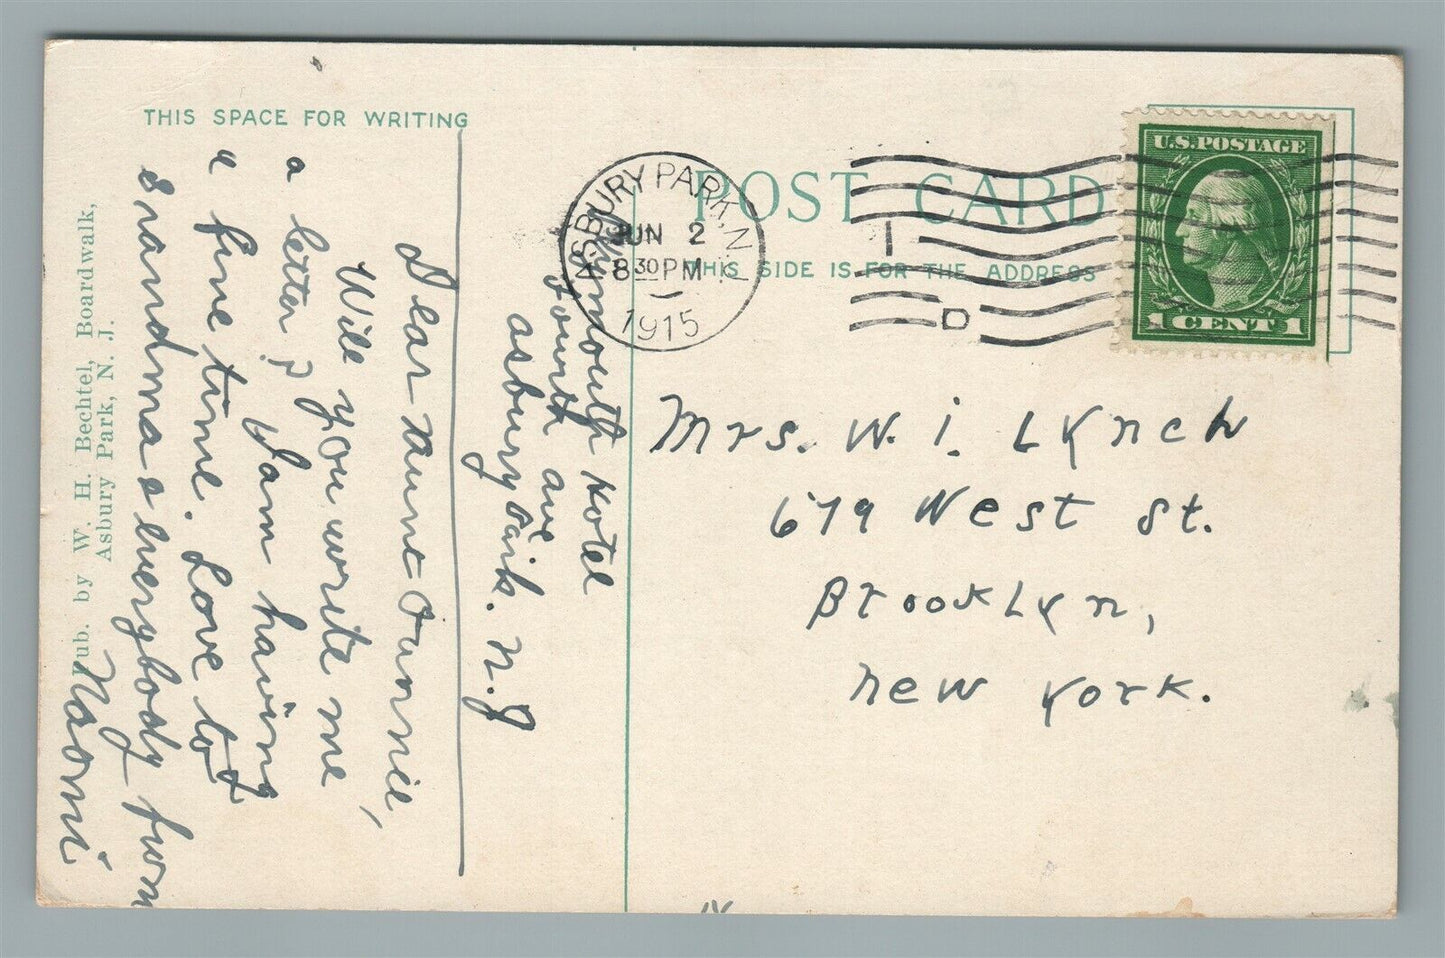 THIS SPACE FOR WRITING
POST CARD
THIS SIDE IS FOR THE ADDRESS
U.S. POSTAGE
1 CENT 1
ASBURY PARK, N.J.
JUN 2
8 30 PM
1915
1
D
Pub. by W. H. Bechtel, Boardwalk,
Asbury Park, N. J.
Hotel
Fourth ave
asbury Park. N.J
Dear Aunt Fannie,
Will you write me
a letter? I am having
a fine time. Love to
Grandma & everybody from
Naomi
Mrs. W. I. Lynch
679 West St.
Brooklyn,
New York.